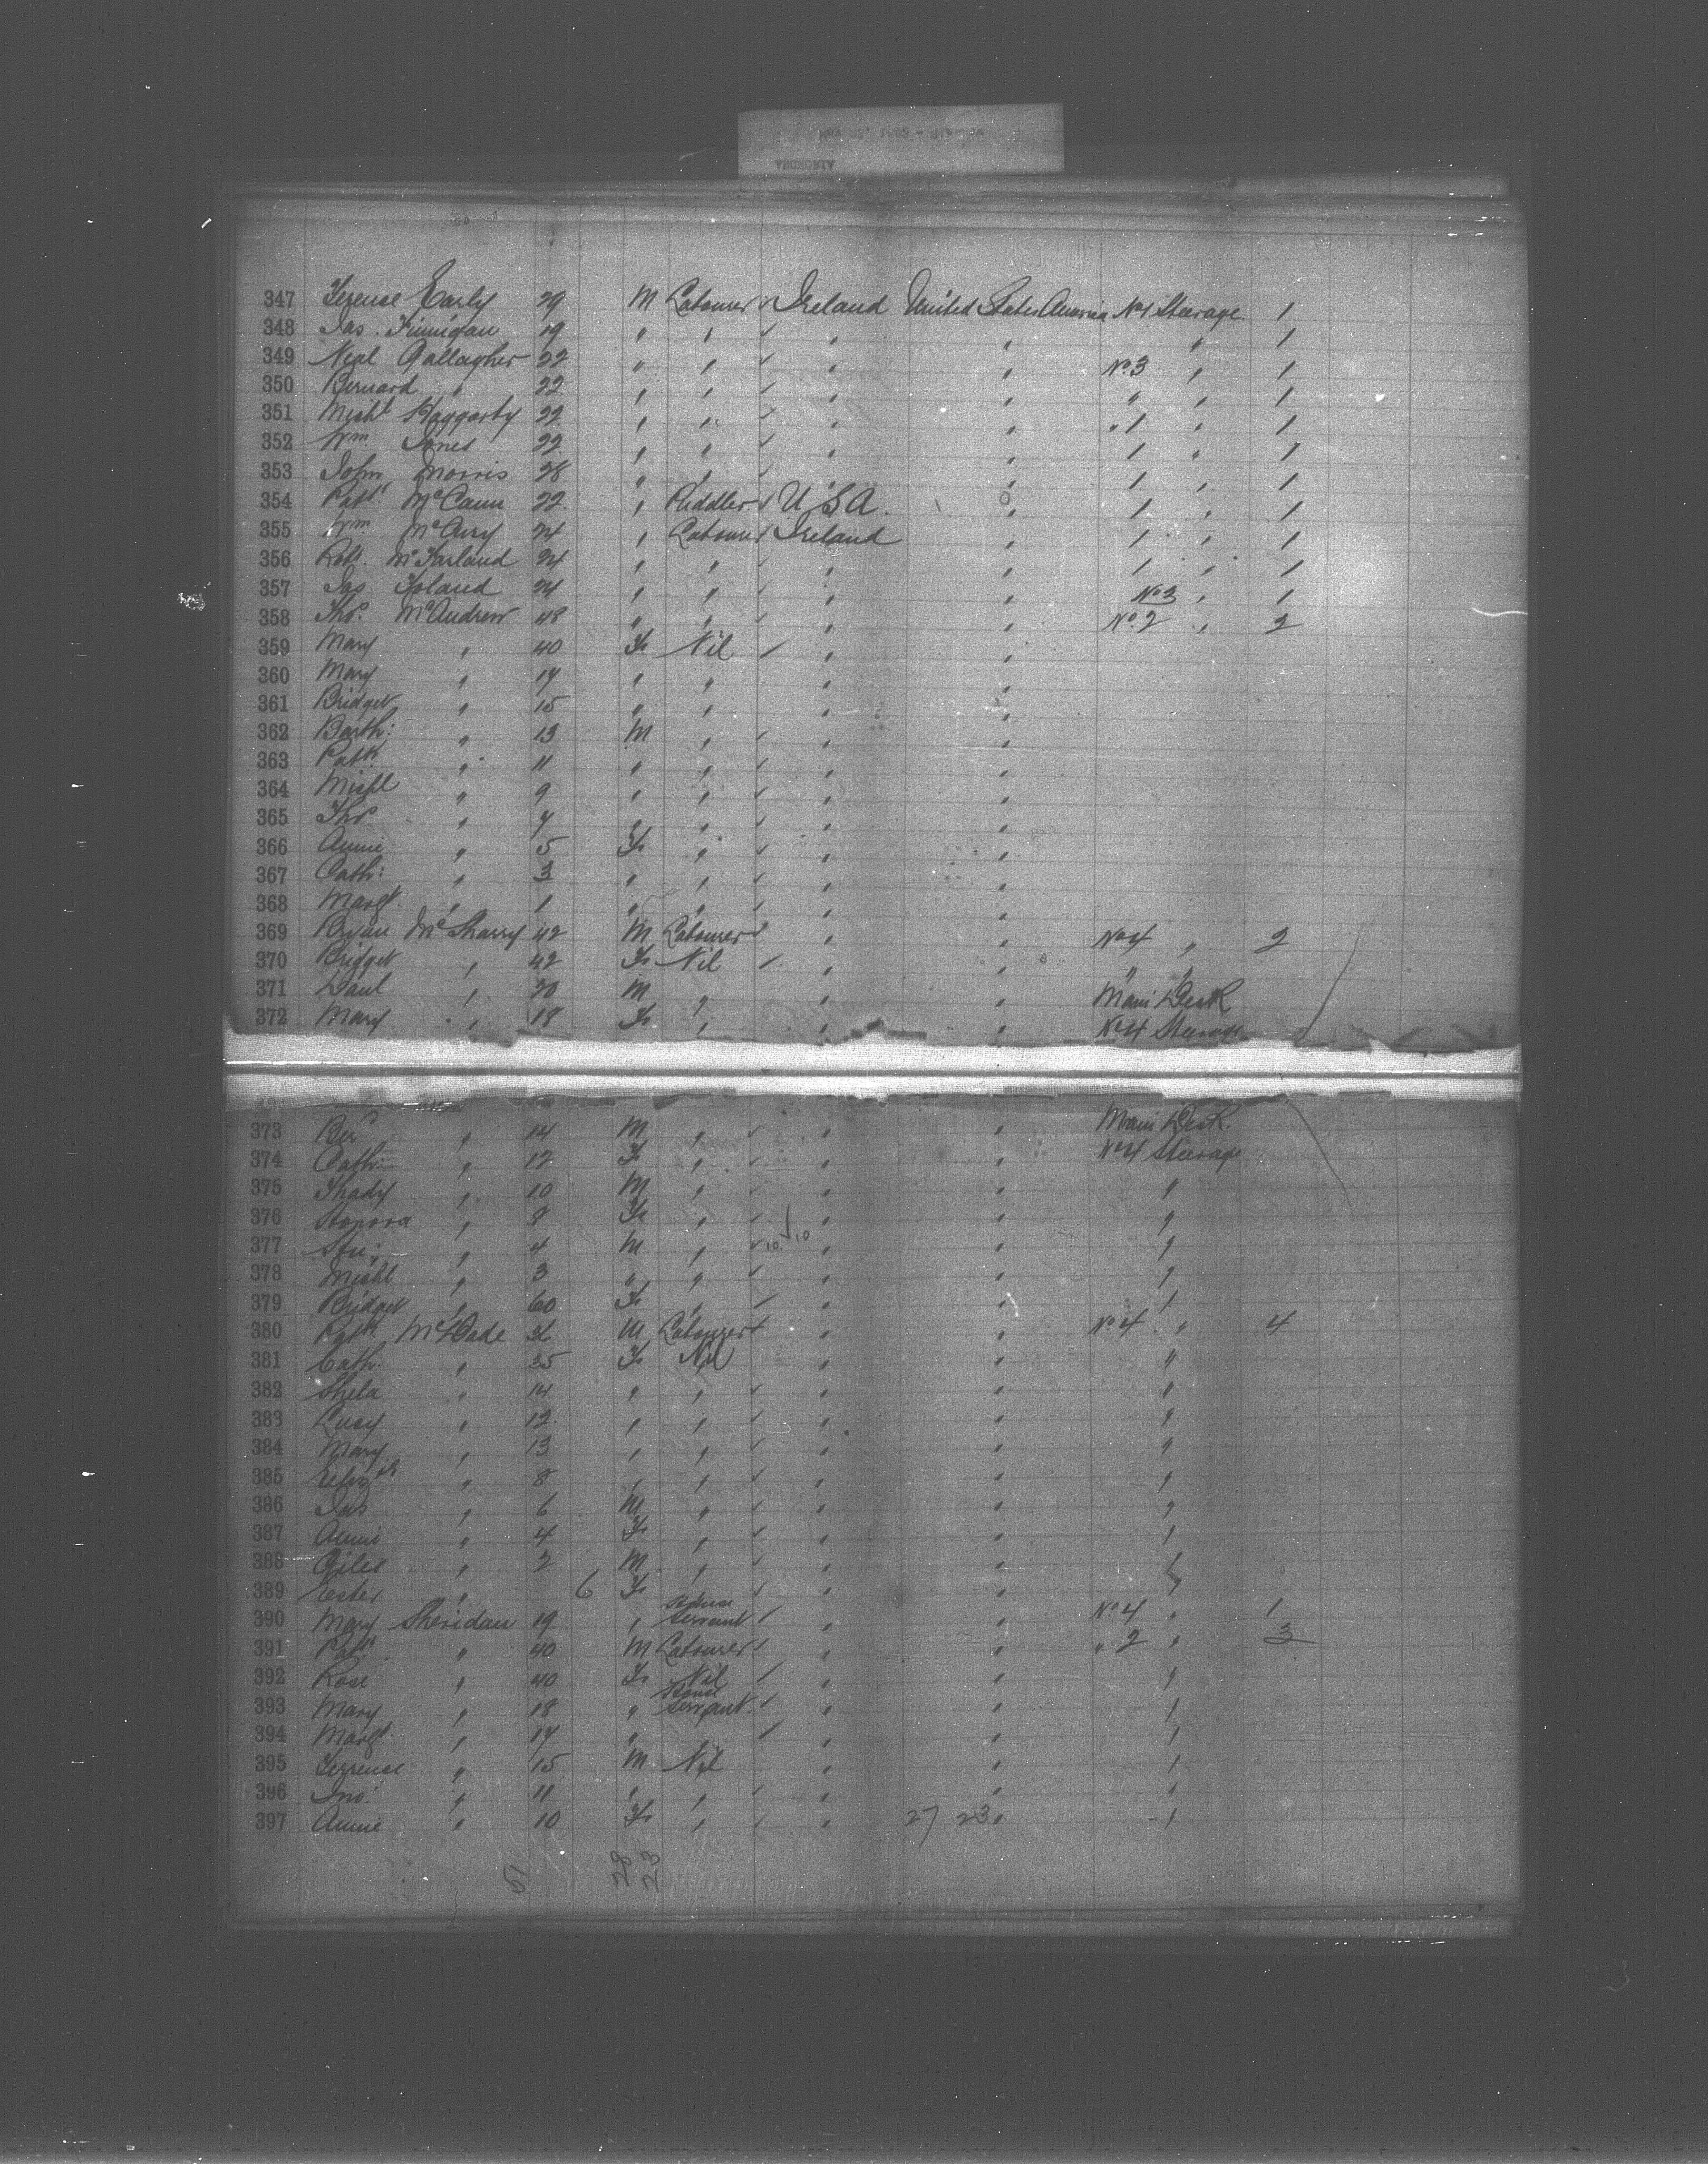 347 Terence Early 29 M Labourer Ireland United States America No 1 Steerage 1
348 Jas. Finnigan 19 " " " " " 1
349 Neal Gallagher 22 " " " " No. 3 " 1
350 Bernard " 22 " " " " " " 1
351 Michl Haggarty 22 " " " " " 1 " 1
352 Wm. Jones 22 " " " " 1 " 1
353 John Morris 28 " " " " 1 " 1
354 Patk McCann 22 " Puddler U S A. " 1 " 1
355 Wm 24 " Labourer Ireland " 1 " 1
356 Robt. McFarland 24 " " " " 1 " 1
357 Jas 24 " " " " No 3 " 1
358 Thos. McAndrew 48 " " " " No. 2 " 2
359 Mary " 40 F Nil " "
360 Mary " 17 " " " "
361 Bridget " 15 " " " "
362 Barth: " 13 M " " "
363 Patk " 11 " " " "
364 Michl " 9 " " " "
365 Thos " 7 " " " "
366 Annie " 5 F " " "
367 Cath: " 3 " " " "
368 Margt. " 1 " " " "
369 Bryan McSharry 42 M Labourer " " No 4 " 2
370 Bridget " 42 F Nil " " " "
371 " 20 M " " " Main Deck
372 Mary " 18 F " " " No 4 Steerage
373 " 14 M " " " Main Deck.
374 Cath: " 12 F " " " No 4 Steerage
375 Thady " 10 M " " " "
376 Honora " 8 F " " " "
377 " 4 M " 10 10 " " "
378 Michl " 3 " " " " "
379 Bridget " 60 F " " " "
380 Patk McDade M Labourer " " No. 4 " 4
381 Cath: " 35 F Nil " " "
382 " 14 " " " " "
383 Lucy " 12 " " " " "
384 Mary " 13 " " " " "
385 Elizth " 8 " " " " "
386 Jas " 6 M " " " "
387 Annie " 4 F " " " "
388 Giles " 2 M " " " "
389 Ester " 6 F " "
390 Mary Sheridan 19 " Servant " " No 4 " 1
391 Patk " 40 M Labourer " " " 2 " 3
392 Rose " 40 F Nil " " "
393 Mary " 18 " Servant. " " "
394 Margt. " 17 " " " "
395 Terrence " 15 M Nil " " "
396 Jno. " 11 " " " " "
397 Annie " 10 F " " 27 23 " "
28 23